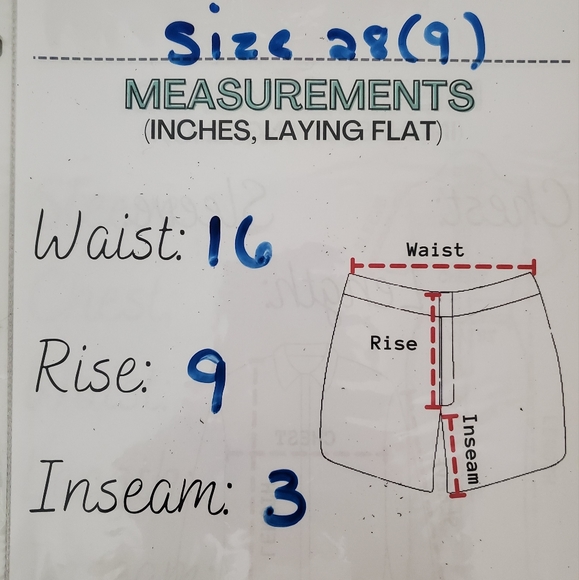 Size 28(9)
MEASUREMENTS
(INCHES, LAYING FLAT)
Waist: 16
Waist
Rise: 9
Rise
Inseam: 3
Inseam
CHEST